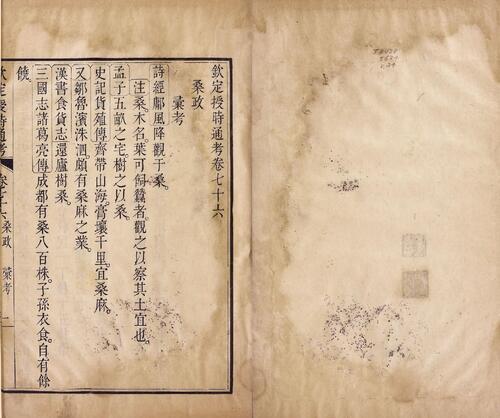 欽定授時通考卷七十六
桑政
彚考
詩經鄘風降觀于桑。
注桑木名葉可飼蠶者觀之以察其土宜也。
孟子五畝之宅樹之以桑。
史記貨殖傳齊帶山海膏壤千里宜桑麻。
又鄒魯濱洙泗頗有桑麻之業。
漢書食貨志還廬樹桑。
三國志諸葛亮傳成都有桑八百株。子孫衣食。自有餘
饒。
欽定授時通考 卷七十六 桑政 彚考 一